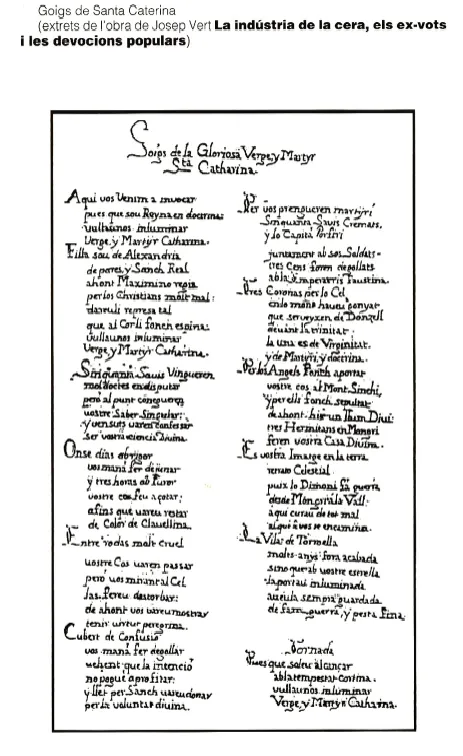 Goigs de Santa Caterina
(extrets de l'obra de Josep Vert La indústria de la cera, els ex-vots
i les devocions populars)
Goigs de la Gloriosa Verge, y Martyr
Sta Catharina.
Aqui vos Venim a invocar
pues que sou Reyna en doctrina
vullaunos inluminar
Verge, y Martyr Catharina.
Filla sou de Alexandria
de pares, y Sanch Real
ahont Maximino regia
per los Christians molt mal:
represa tal
que al Cor li fonch espina:
vullaunos inluminar
Verge, y Martyr Catharina.
Sinquanta Savis Vingueren
mal doctes en disputar
però al punt conegueren
vostre Saber Singular:
y vensuts varen confessar
Ser vostra ciencia Divina.
Onse dias
vos maná fer dejunar
y tres horas ab furor
vostre cos feu açotar:
afins que vareu restar
de Color de Clavellina.
Entre rodas molt cruel
vostre Cos varen passar
però vos mirant al Cel
las fereu destorbar:
de ahont vos vareu mostrar
tenir virtut peregrina.
Cubert de Confusió
vos maná fer degollar
vehent que la intenció
no pogué aprofitar:
y llet per Sanch vareu donar
per la voluntat divina.
Per vos prengueren martyri
Sinquanta Savis Cremats,
y lo Capità Porfiri
juntament ab sos Soldats
tres Cens foren degollats
ab la Emperatris Faustina.
Tres Coronas per lo Cel
que serveyxen de Donzell
devant la trinitat:
la una es de Virginitat,
y de Martyri, y doctrina.
Per los Angels fonch aportat
vostre cos al Mont Sinahi,
y per ell fonch sepultat
de ahont hix un Llum Divi:
tres Hermitans en Mongri
feren vostra Casa Divina.
Es vostra Imatge en la terra
retrato Celestial
puix lo Dimoni fa guerra
desde Mongri á la Vall:
aqui curau de tot mal
al qui á vos se encamina.
La Vila de Torroella
molts anys fora acabada
sino que ab vostre estrella
la portau inluminada
sempre guardada
de fam, guerra, y pesta fina.
Tornada
Pues que saleu alcançar
ab la tempestat
vullaunos inluminar
Verge, y Martyr Catharina.